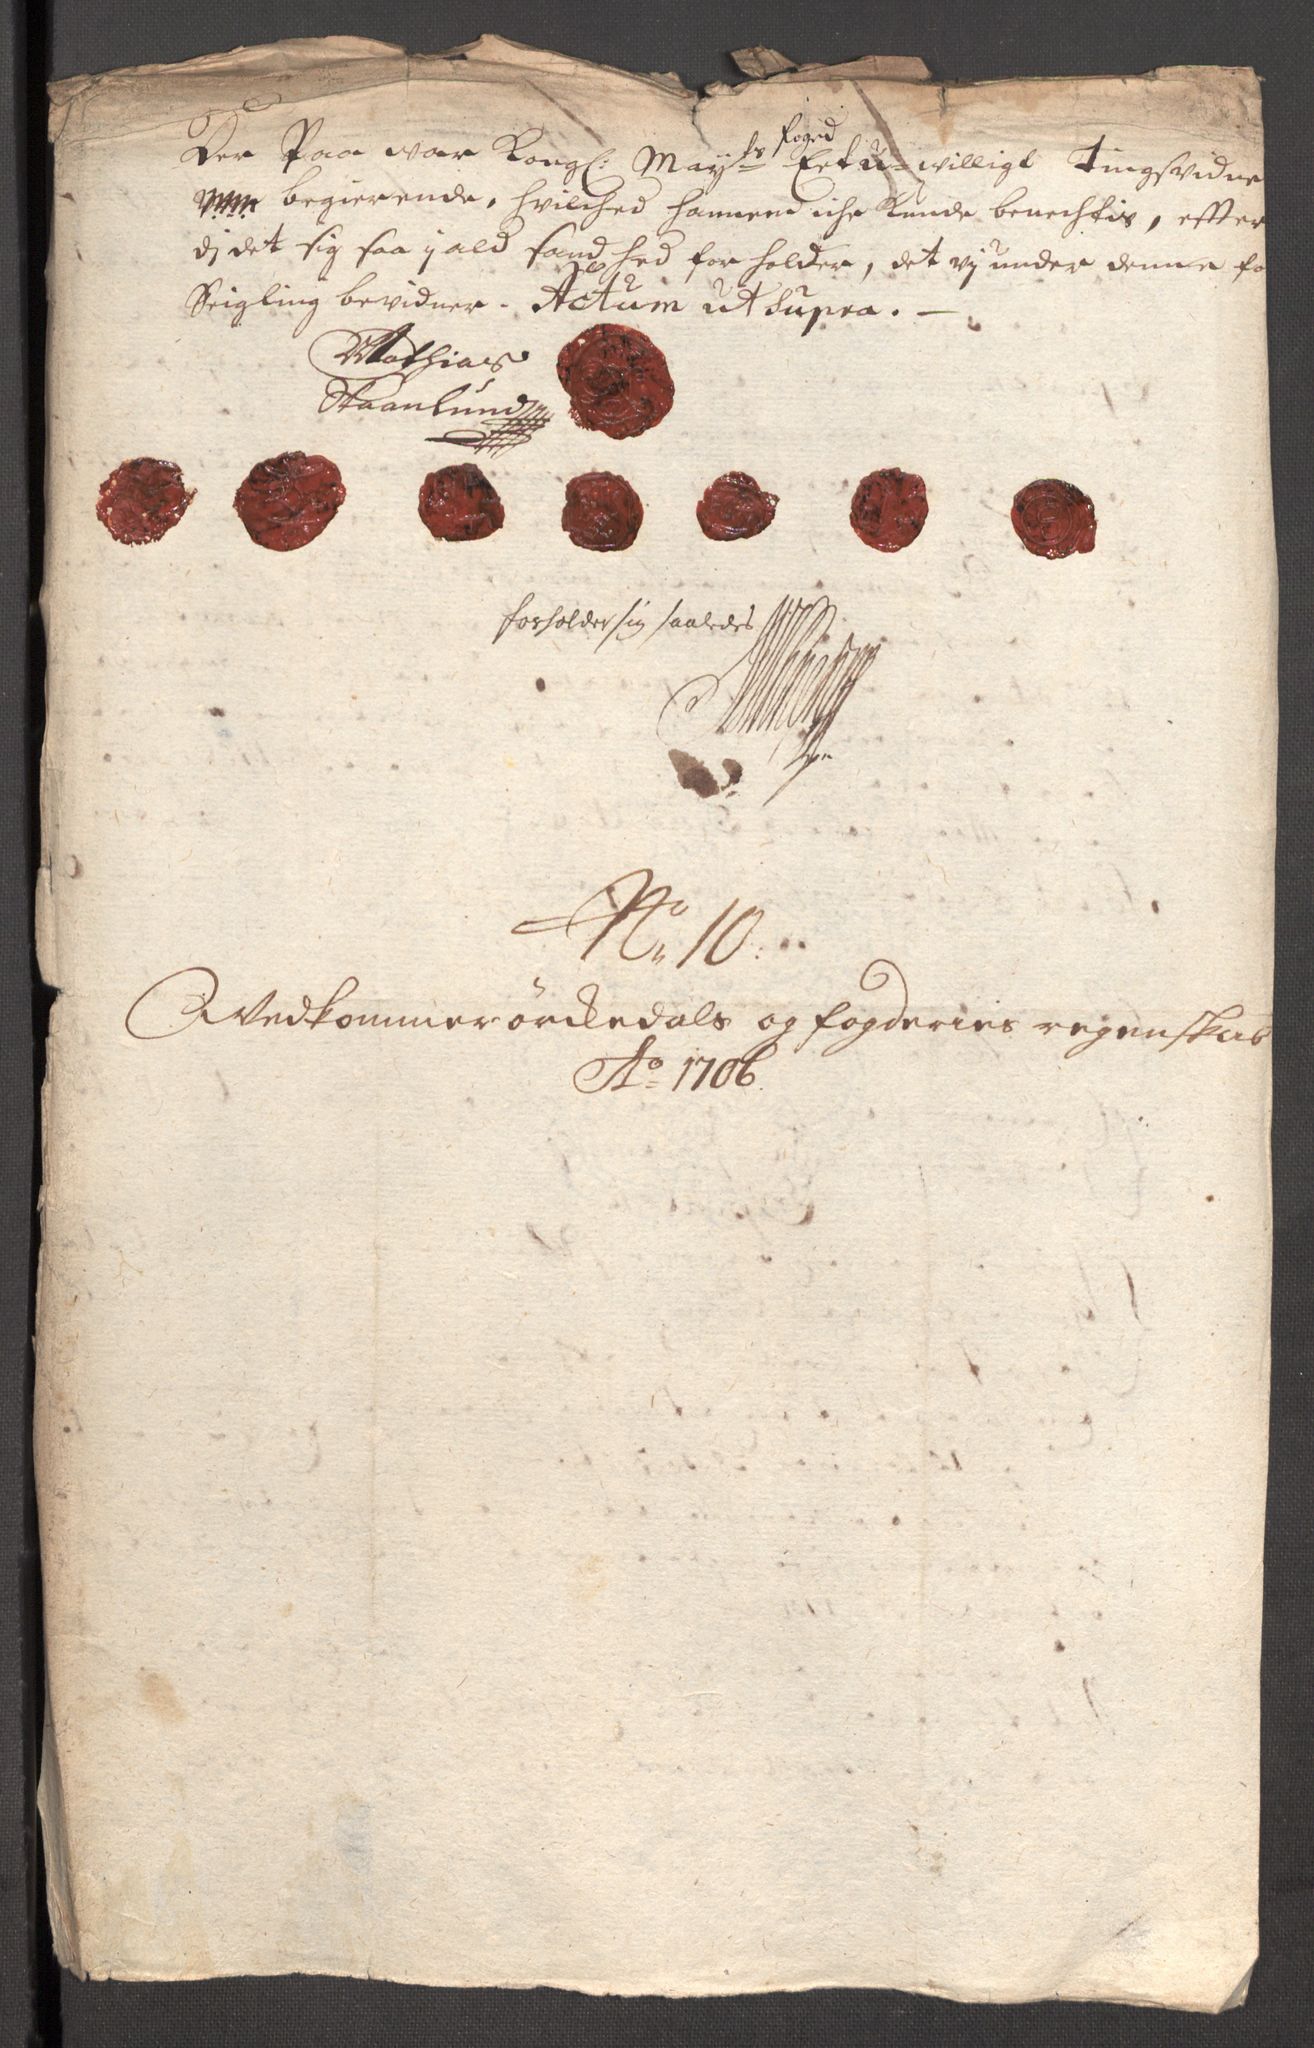 Der Paa war Kongl: May:ts foged Eet u-willigt Tingsvidne
begierende, hvilched hannem iche Kunde benechtis, effter
dj det sig saa j ald sandhed for holder, det vj under denne fo
Seigling bevidner. Actum ut Supra. —
Mathias
Skaanlund
forholder sig saaledes
No 10:
Vedkommer örckedals og fogderies regenskab
Ao 1706.